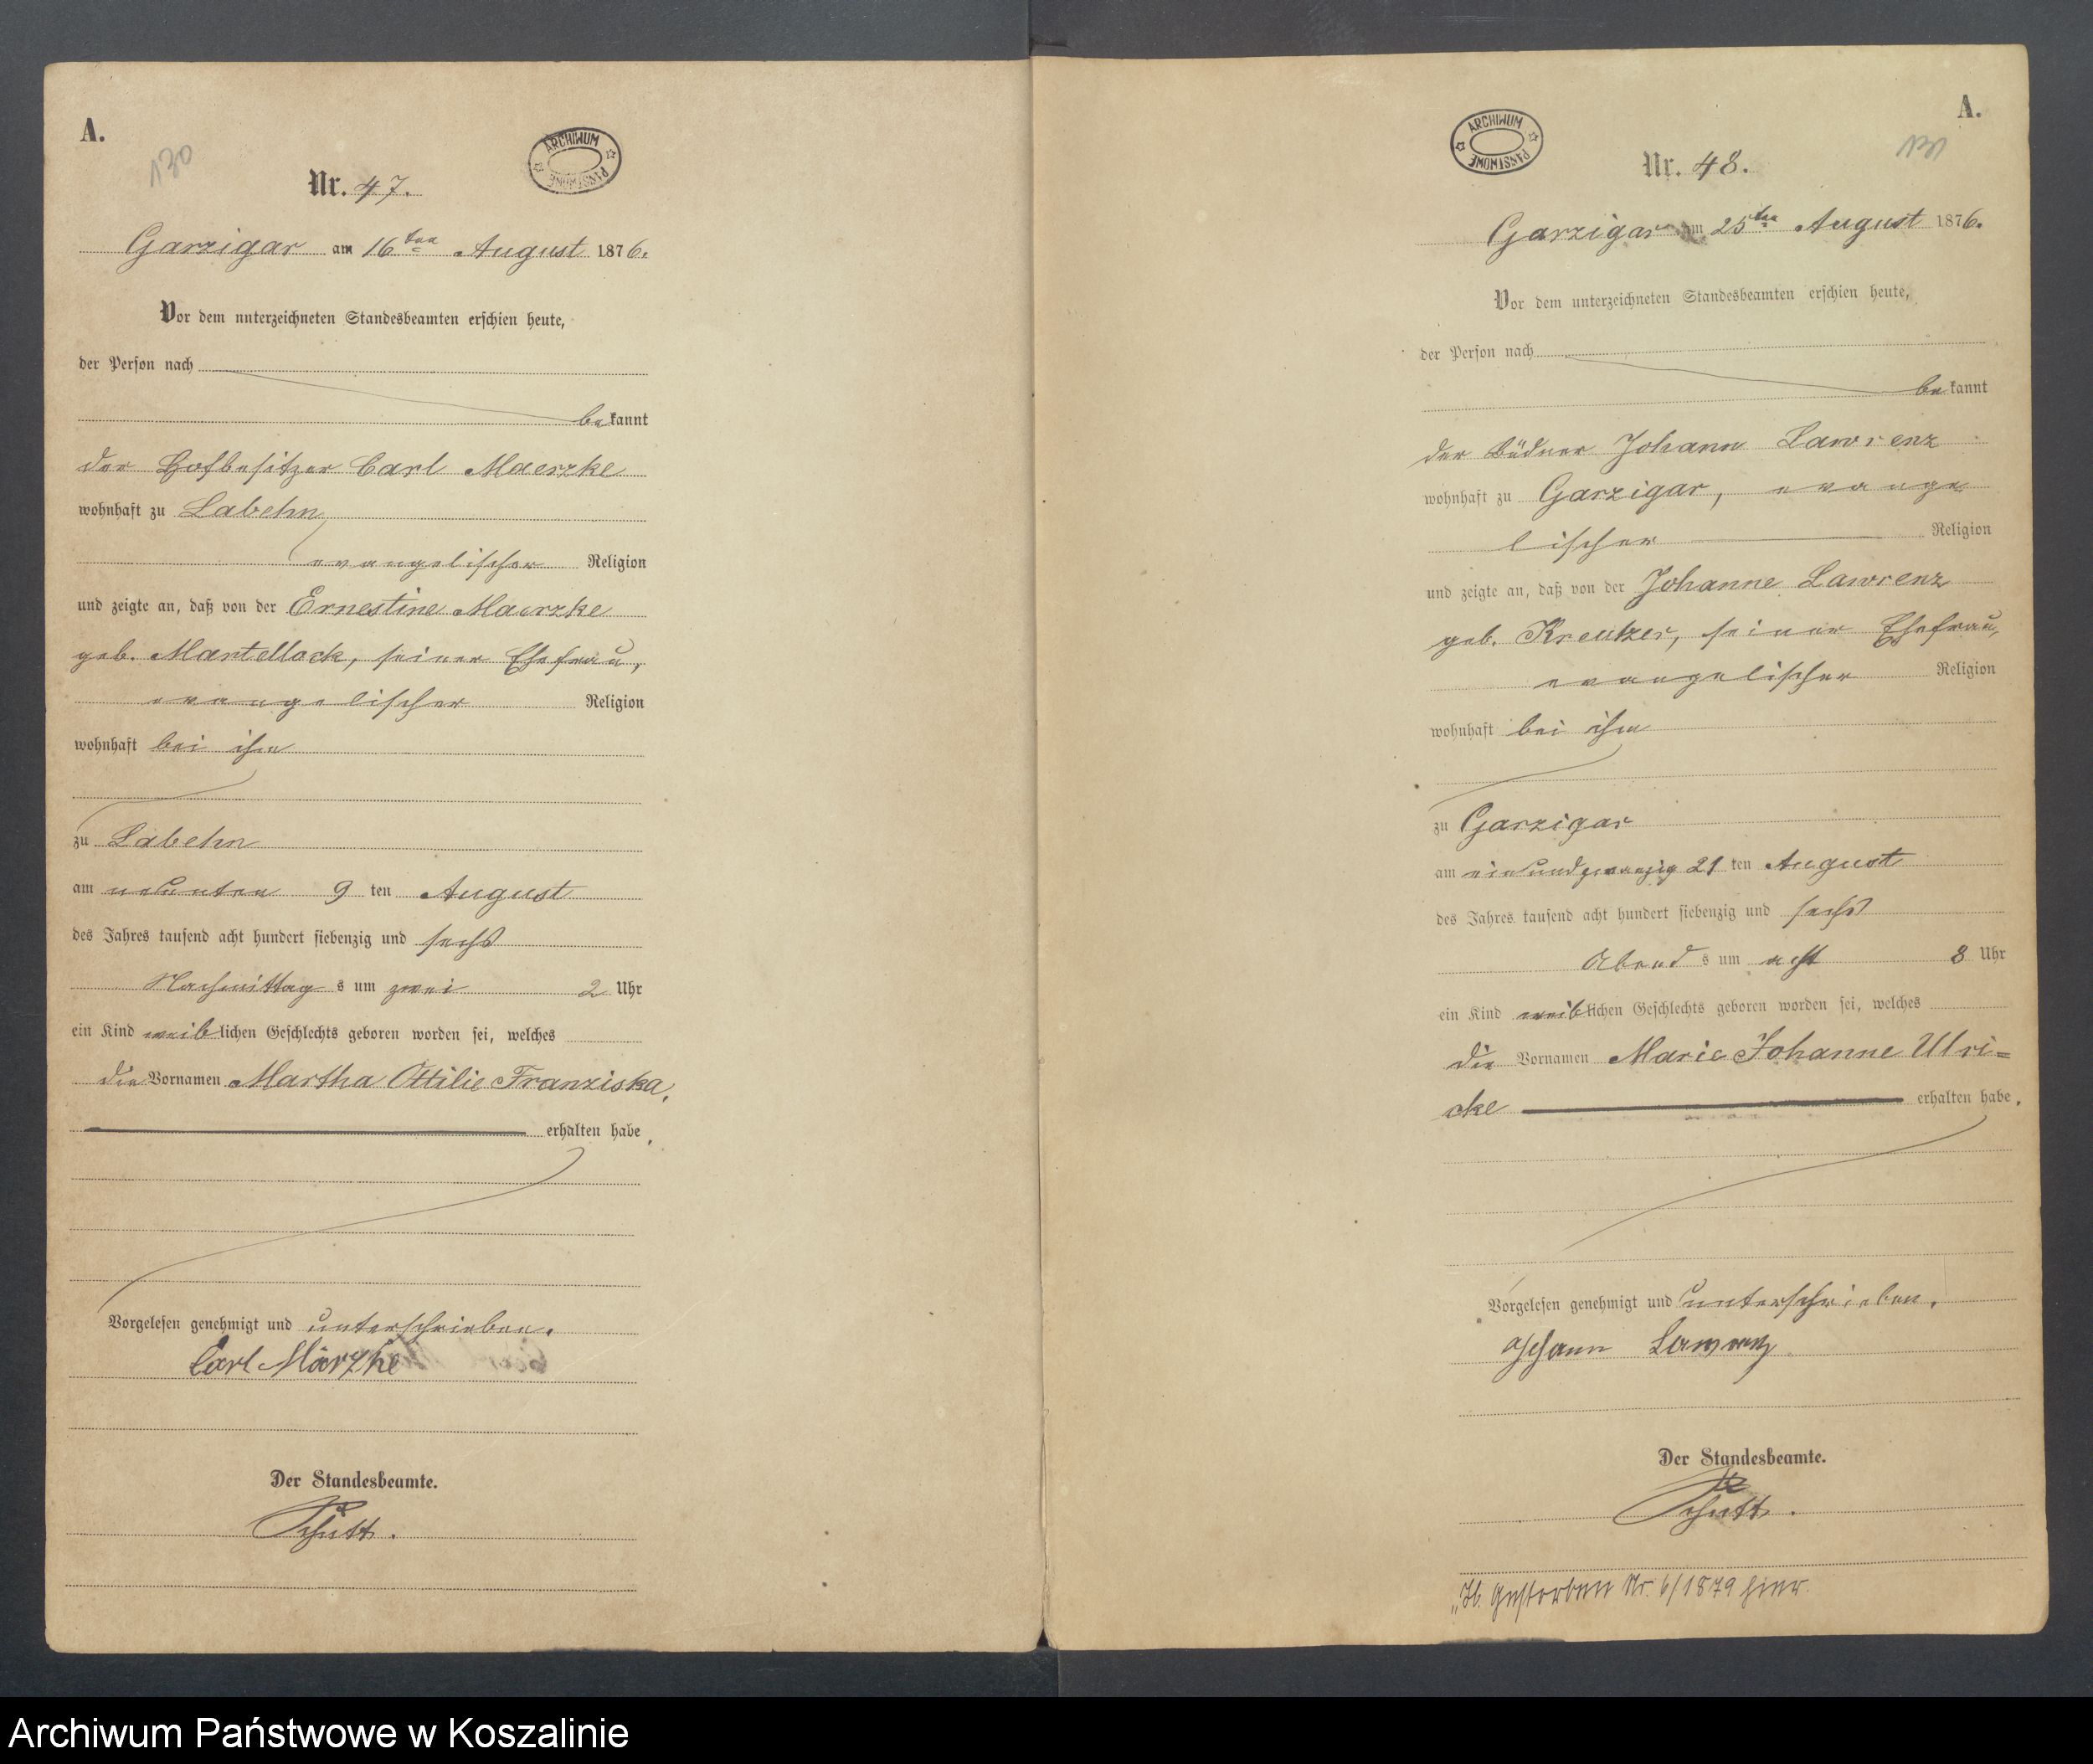 A.
130
Nr. 47.
ARCHIWUM PAŃSTWOWE
Garzigar am 16ten August 1876.
Vor dem unterzeichneten Standesbeamten erschien heute,
der Person nach
bekannt
der Hofbesitzer Carl Maerzke
wohnhaft zu Labehn
evangelischer Religion
und zeigte an, daß von der Ernestine Maerzke
geb. Mantellock, seiner Ehefrau,
evangelischer Religion
wohnhaft bei ihm
zu Labehn
am neunten 9 ten August
des Jahres tausend acht hundert siebenzig und sechs
Nachmittag s um zwei 2 Uhr
ein Kind weiblichen Geschlechts geboren worden sei, welches
die Vornamen Martha Ottilie Franziska,
erhalten habe.
Vorgelesen genehmigt und unterschrieben.
Carl Märzke
Der Standesbeamte.
Schütt.
A.
131
Nr. 48.
ARCHIWUM PAŃSTWOWE
Garzigar am 25ten August 1876.
Vor dem unterzeichneten Standesbeamten erschien heute,
der Person nach
bekannt
der Büdner Johann Lawrenz
wohnhaft zu Garzigar, evange
lischer Religion
und zeigte an, daß von der Johanne Lawrenz
geb. Kreutzer, seiner Ehefrau,
evangelischer Religion
wohnhaft bei ihm
zu Garzigar
am einundzwanzig 21 ten August
des Jahres tausend acht hundert siebenzig und sechs
Abend s um acht 8 Uhr
ein Kind weiblichen Geschlechts geboren worden sei, welches
die Vornamen Marie Johanne Ulri=
cke erhalten habe.
Vorgelesen genehmigt und unterschrieben.
Johann Lawrenz
Der Standesbeamte.
Schütt.
Gestorben Nr. 6/1879 hier.
Archiwum Państwowe w Koszalinie